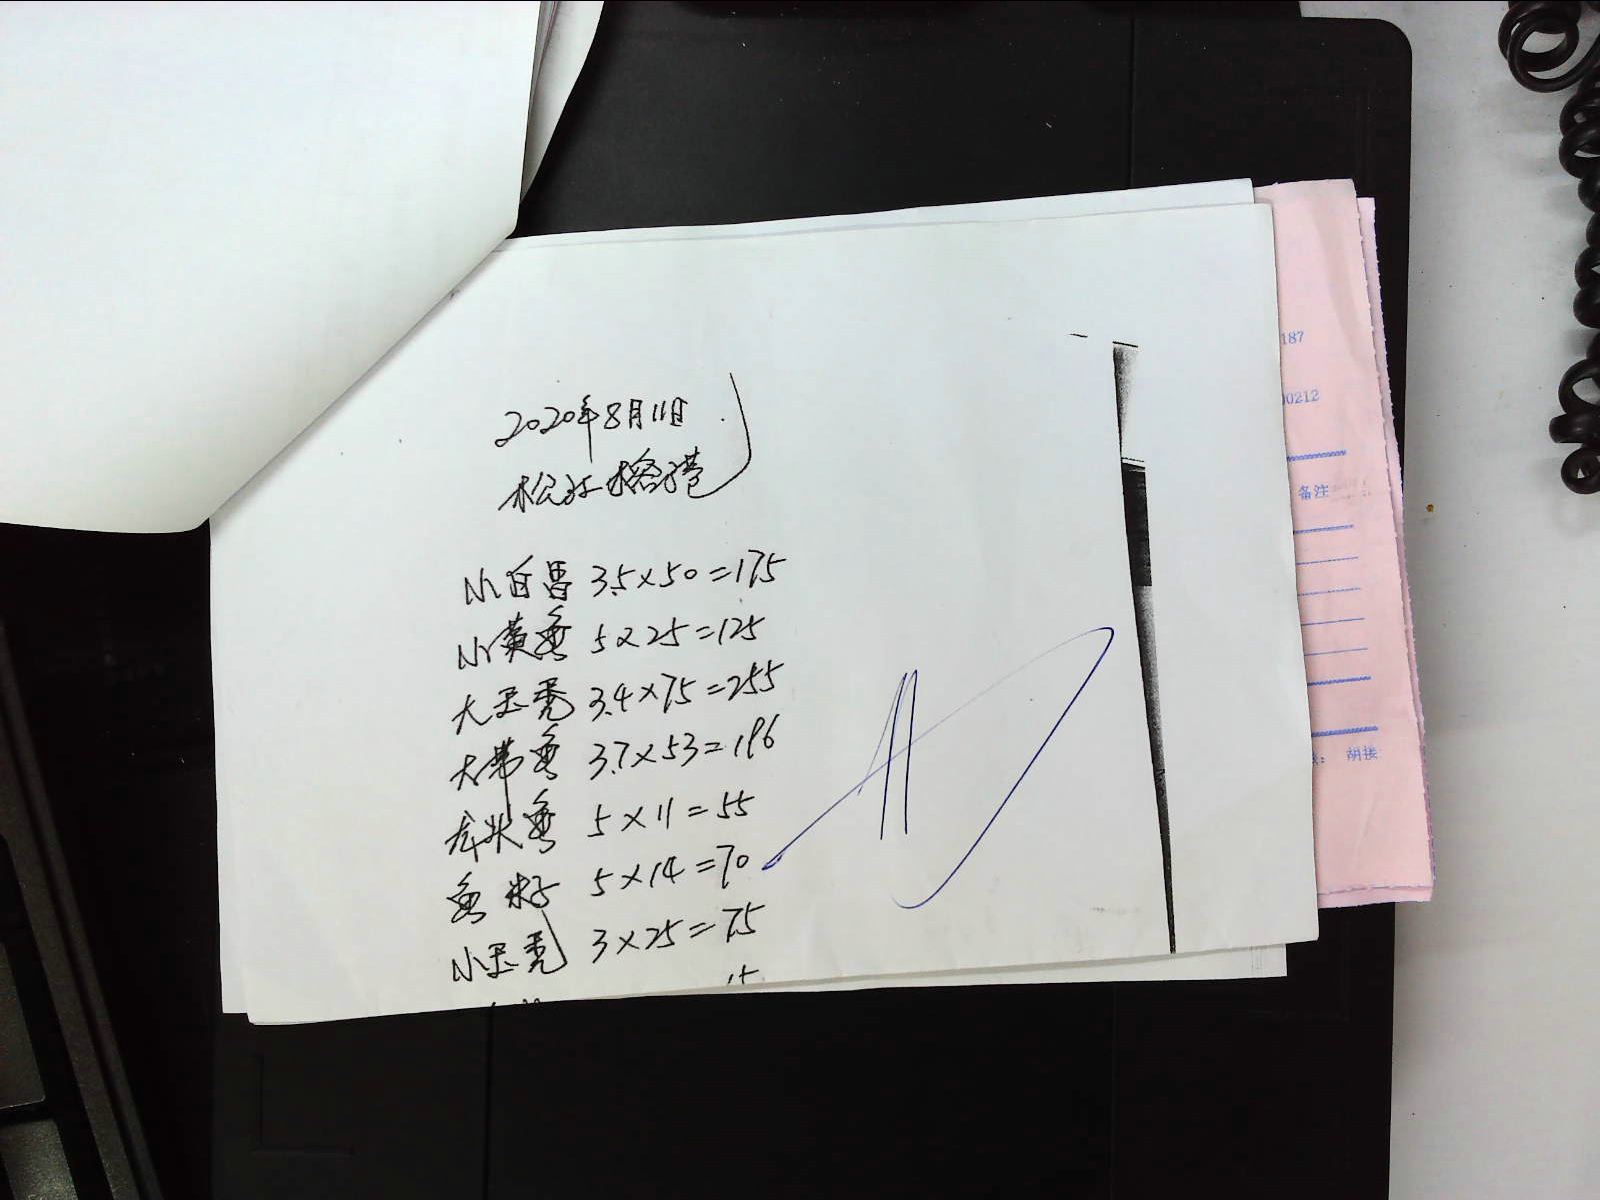 2020年8月11日
松江榕港
小白昌 3.5×50=175
小黄鱼 5×25=125
大玉秃 3.4×75=255
大带鱼 3.7×53=196
龙头鱼 5×11=55
鱼籽 5×14=70
小玉秃 3×25=75
187
00212
备注
胡接